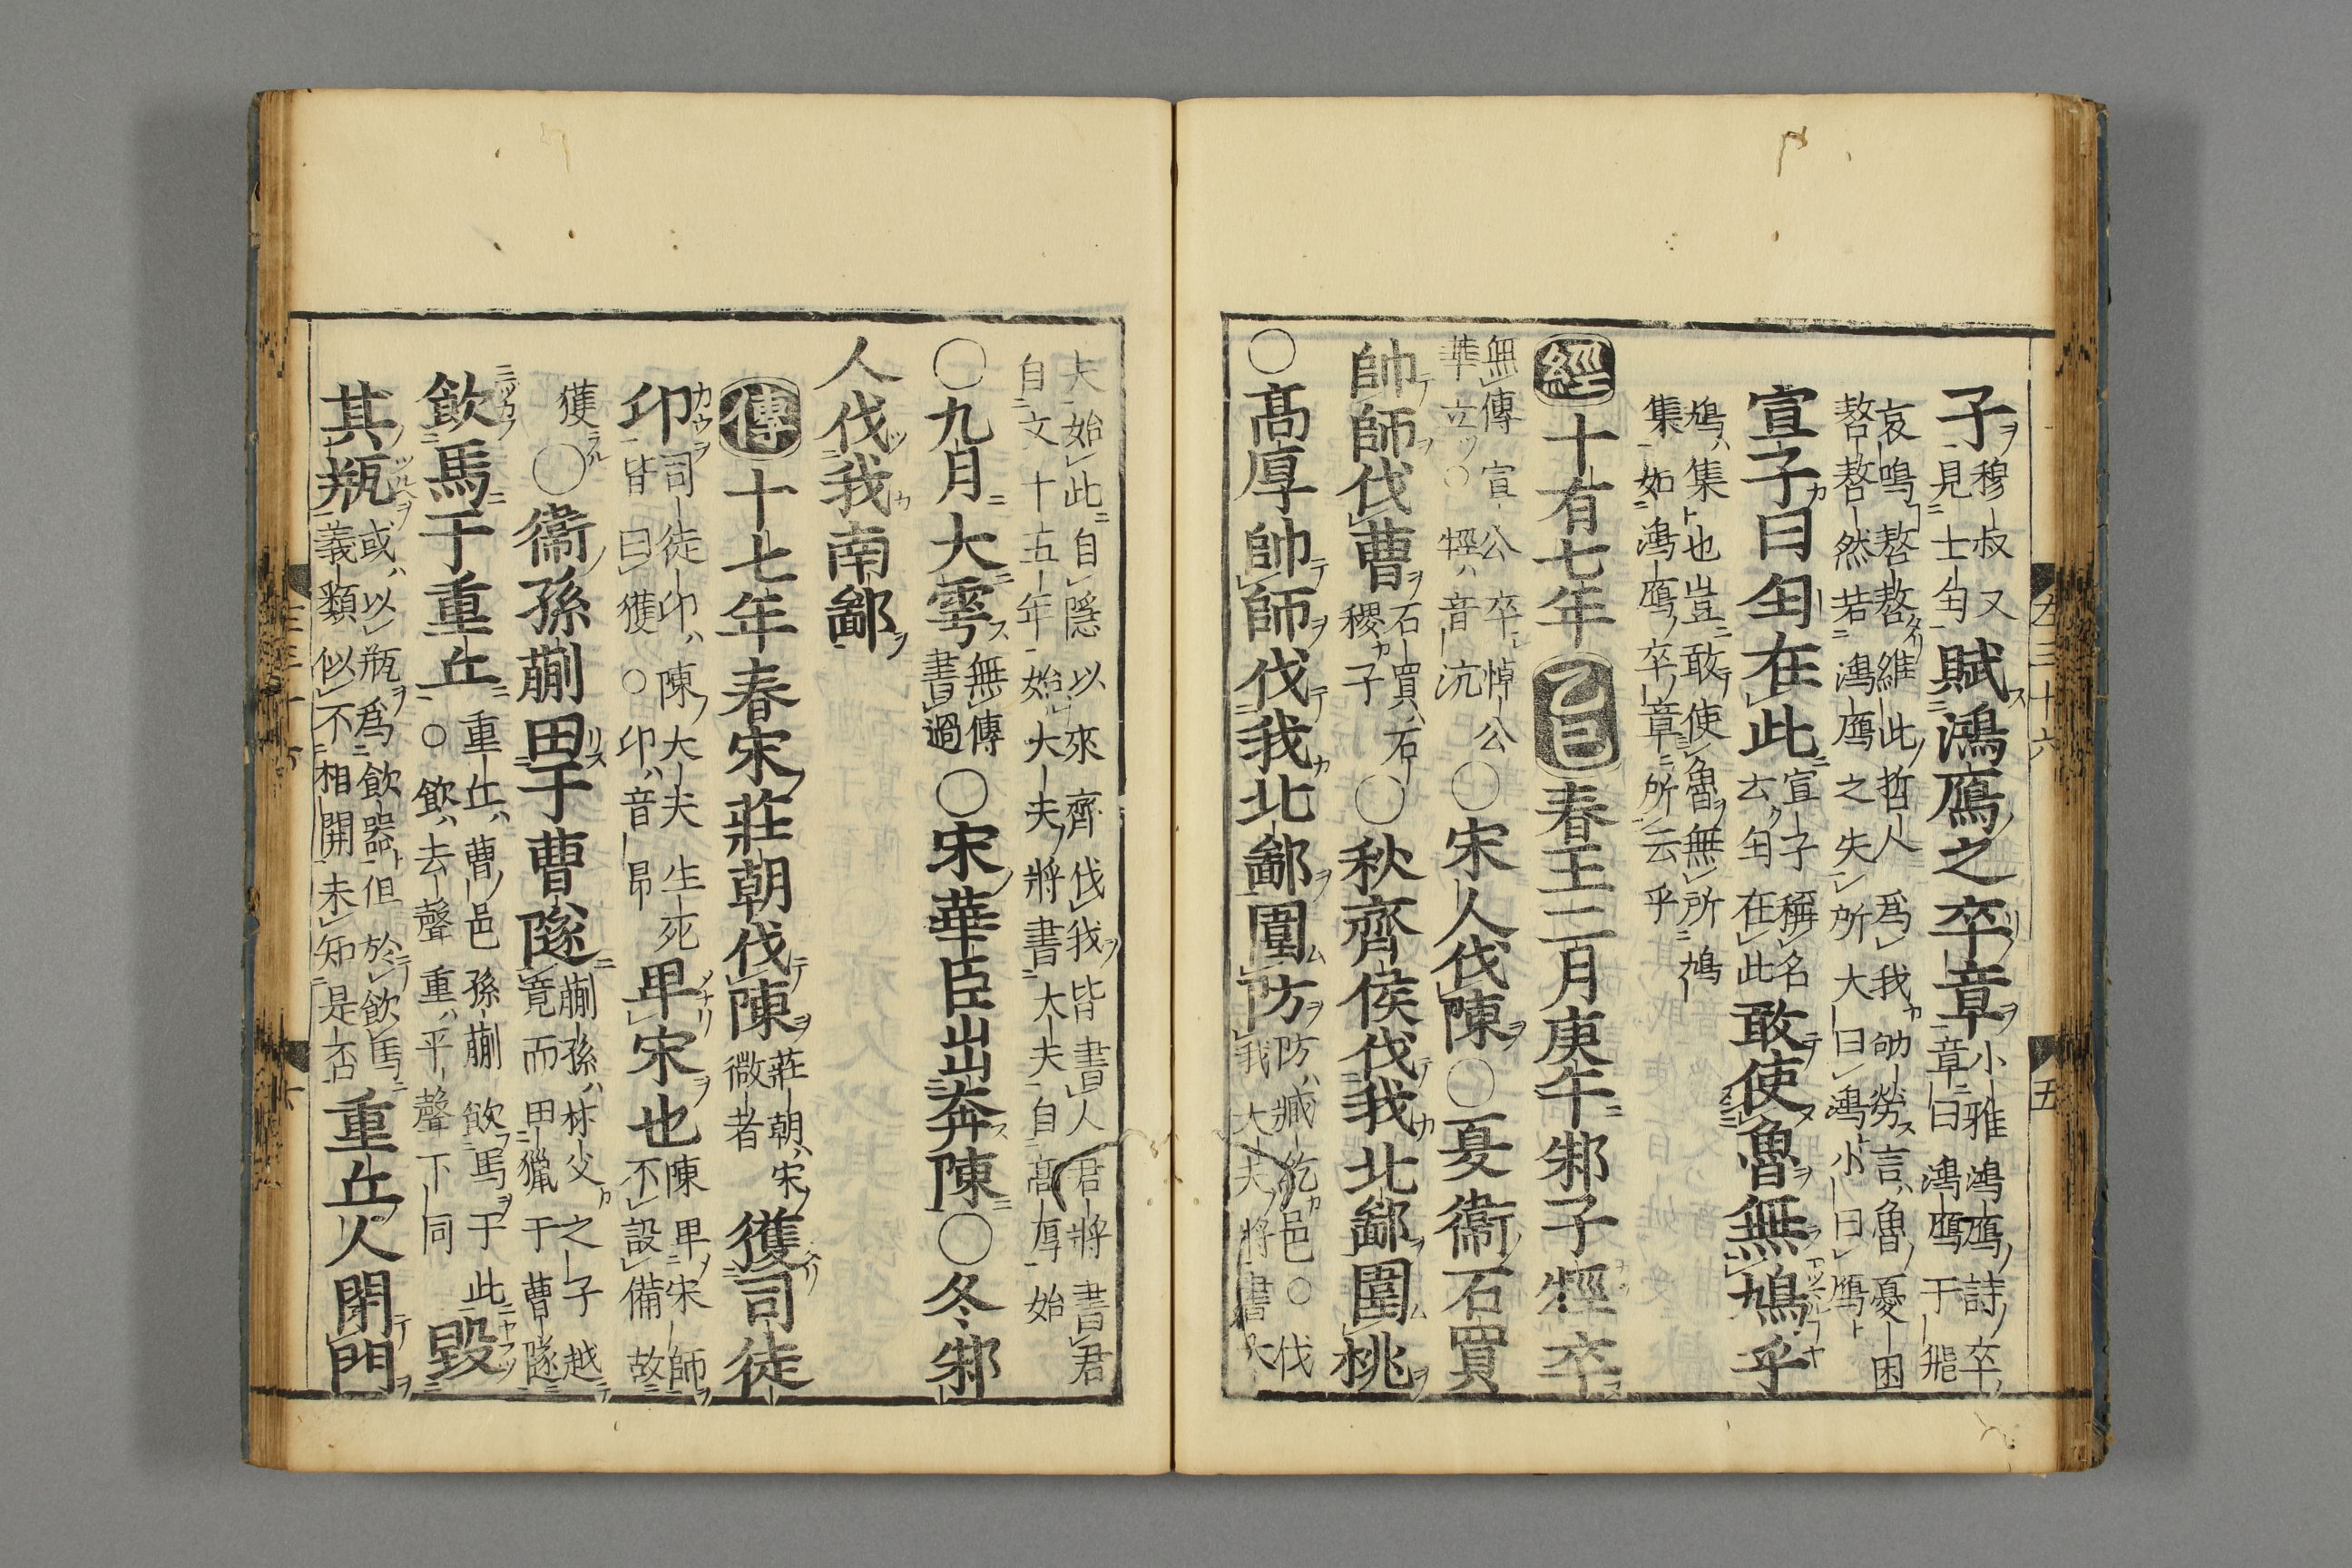 子穆叔又見士匄賦鴻鴈之卒章小雅鴻鴈詩卒章曰鴻鴈于飛
哀鳴嗸嗸維此哲人爲我劬勞言魯憂困嗸嗸然若鴻鴈之失所大曰鴻小曰鴈
宣子曰匄在此宣子稱名云匄在此敢使魯無鳩乎
鳩集也豈敢使魯無所鳩集如鴻鴈卒章所云乎
經十有七年乙巳春王二月庚午邾子牼卒
無傳宣公卒悼公華立○牼音沆○宋人伐陳○夏衞石買
帥師伐曹石買石稷子○秋齊侯伐我北鄙圍桃
○高厚帥師伐我北鄙圍防防臧紇邑○伐我大夫將書大
夫始此自隱以來齊伐我皆書人君將書君自文十五年始大夫將書大夫自高厚始
○九月大雩無傳書過○宋華臣出奔陳○冬邾
人伐我南鄙
傳十七年春宋莊朝伐陳莊朝宋微者獲司徒
卬司徒卬陳大夫生死皆曰獲○卬音昂卑宋也陳卑宋師不設備故
獲○衞孫蒯田于曹隧蒯孫林父之子越竟而田獵于曹隧
飮馬于重丘重丘曹邑孫蒯飮馬于此○飮去聲重平聲下同毀
其瓶或以瓶爲飮器但於飮馬義類似不相開未知是否重丘人閉門
左三十六
五